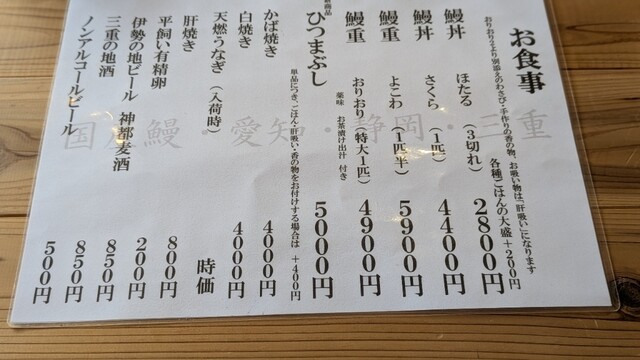 お食事
おりおりより別添えのわさび・手作りの香の物、お吸い物は「肝吸い」になります
各種ごはんの大盛+200円
鰻丼 ほたる(3切れ) 2800円
鰻丼 さくら(1匹) 4400円
鰻重 よこわ(1匹半) 5900円
鰻重 おりおり(特大1匹) 4900円
ひつまぶし 薬味 お茶漬け出汁 付き 5000円
単品につき、ごはん・肝吸い・香の物をお付けする場合は +400円
かば焼き 4000円
白焼き 4000円
天然うなぎ(入荷時) 時価
肝焼き 800円
平飼い有精卵 200円
伊勢の地ビール 神都麦酒 850円
三重の地酒 850円
ノンアルコールビール 500円
国産鰻・愛知・静岡・三重